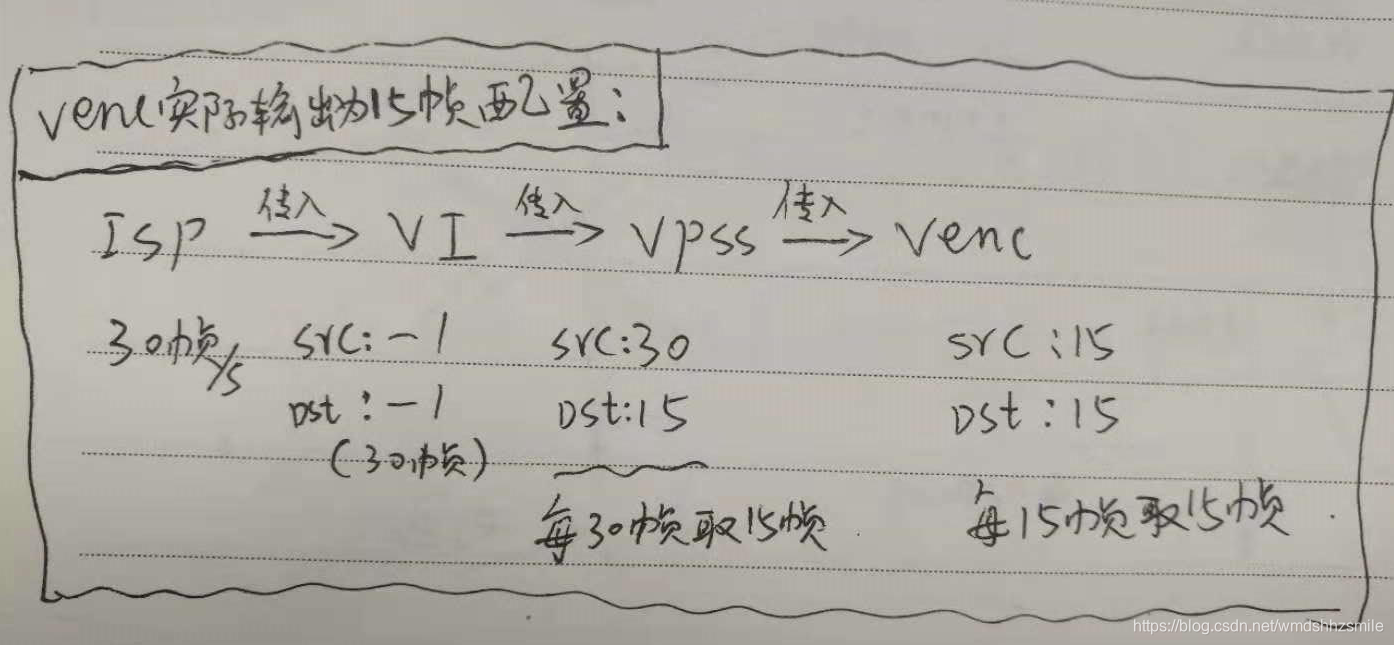 venc实际输出为15帧配置:
传入 传入 传入
Isp → VI → Vpss → Venc
30帧/s src:-1 src:30 src:15
Dst:-1 Dst:15 Dst:15
(30帧)
每30帧取15帧. 每15帧取15帧.
https://blog.csdn.net/wmdshhzsmile